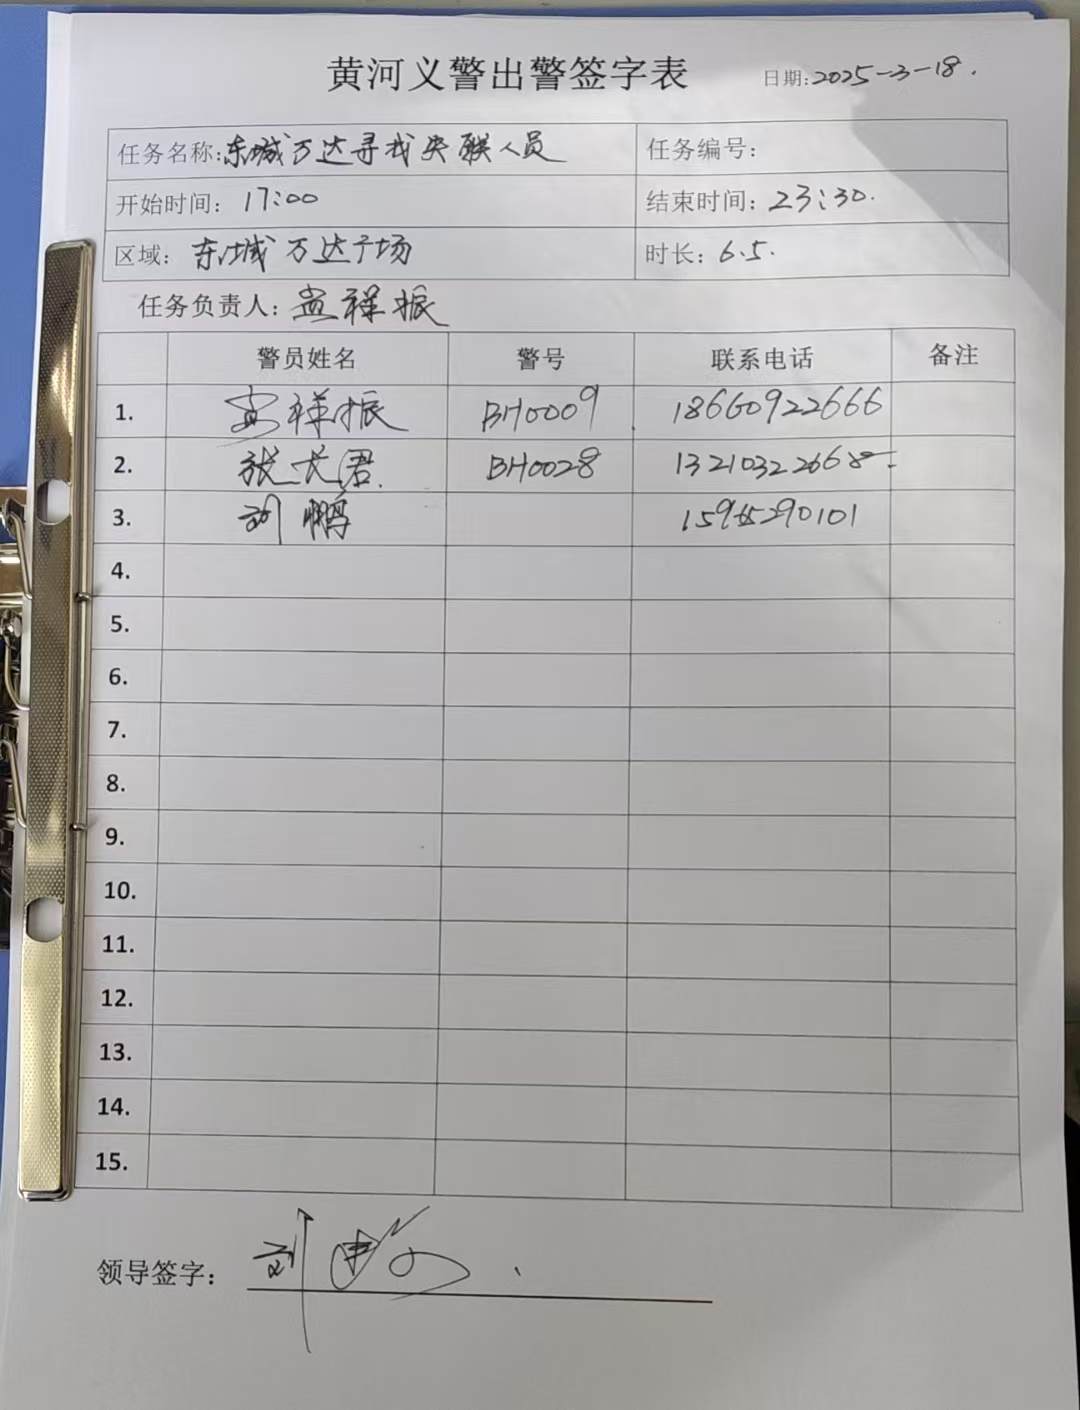 黄河义警出警签字表 日期:2025-3-18.
任务名称:东城万达寻找失联人员 任务编号:
开始时间: 17:00 结束时间: 23:30.
区域: 东城万达广场 时长: 6.5.
任务负责人: 祥振
警员姓名 警号 联系电话 备注
1. 祥振 BH0009 18660922666
2. 张大君. BH0028
3. 刘鹏 15965290101
4.
5.
6.
7.
8.
9.
10.
11.
12.
13.
14.
15.
领导签字: 刘